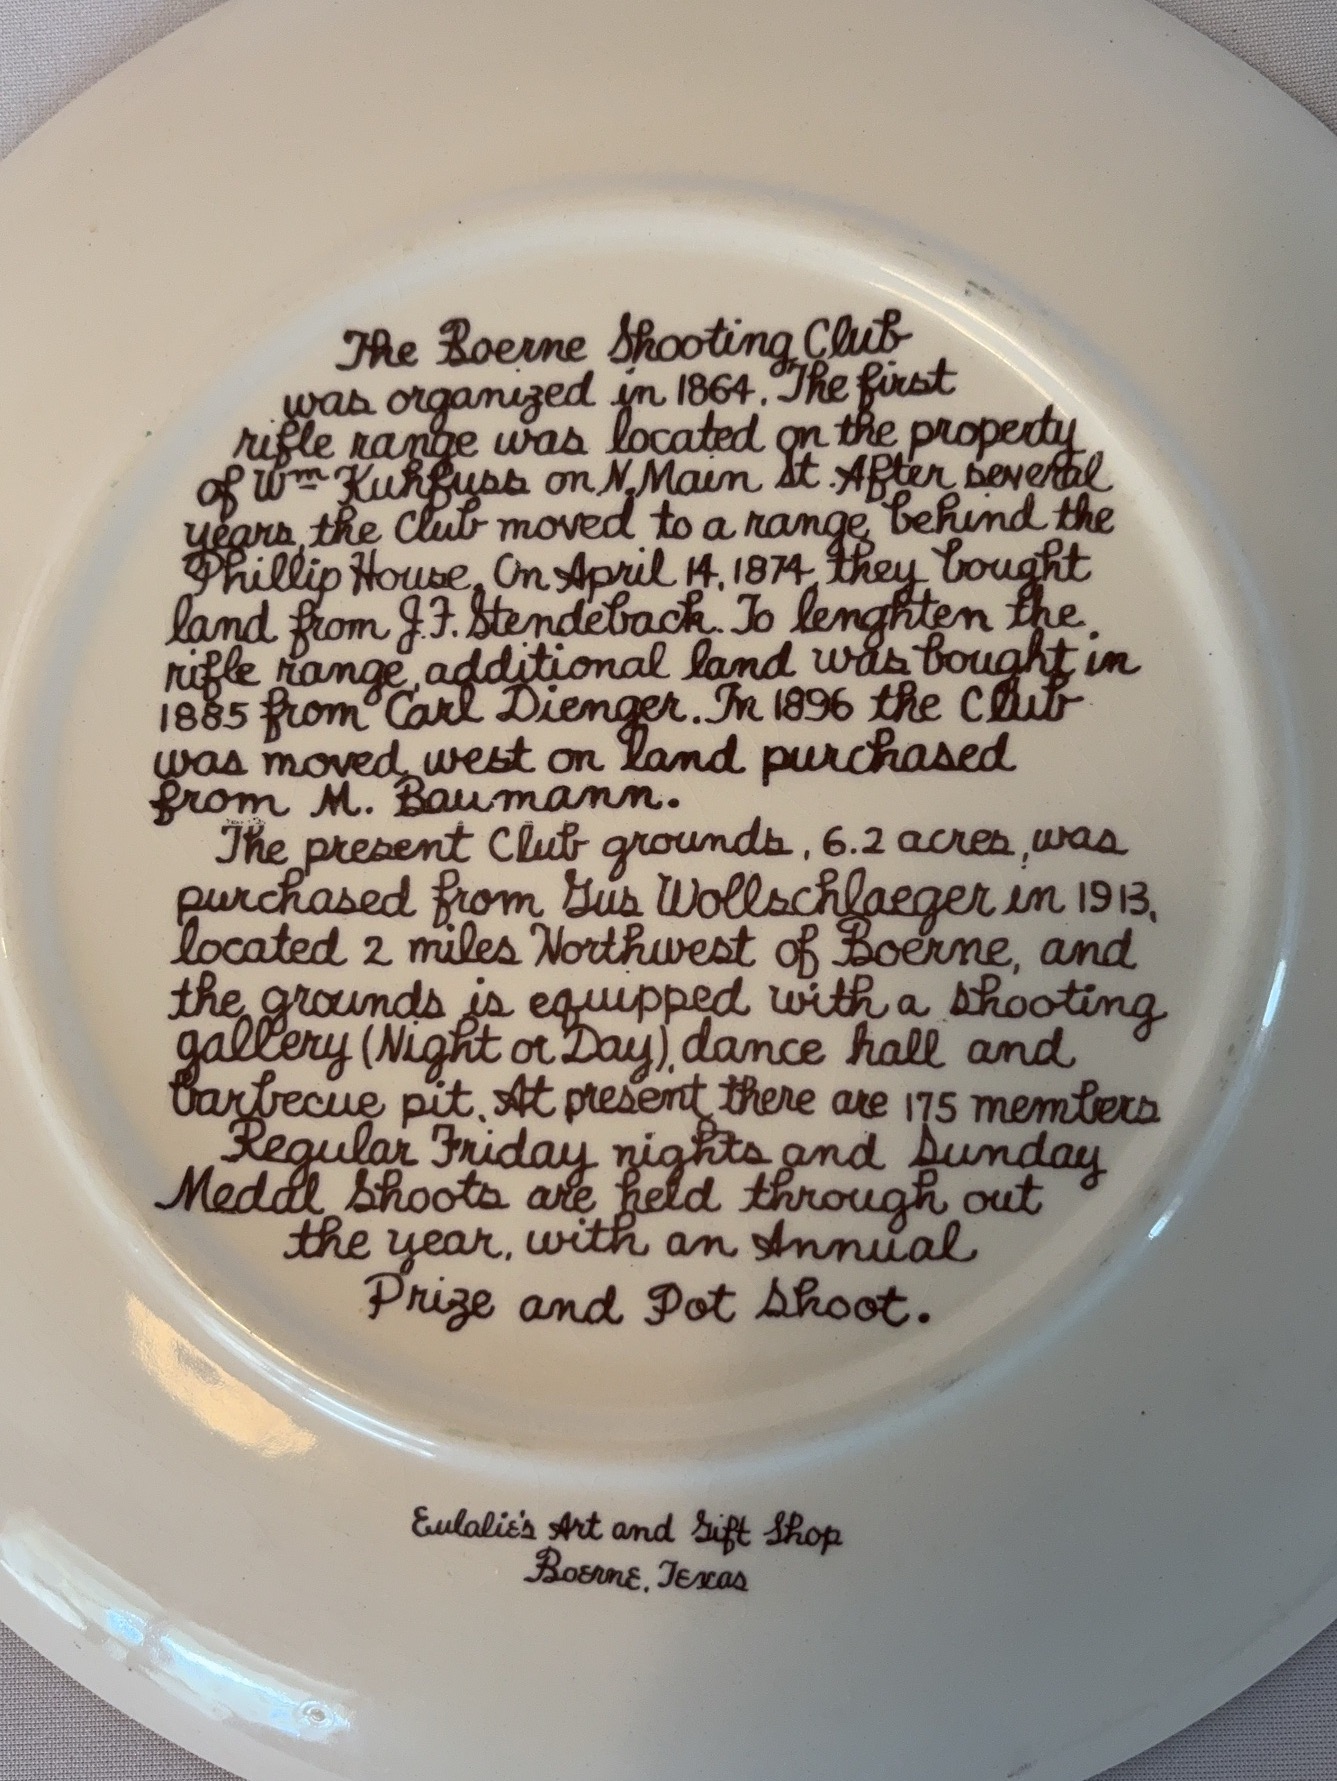 The Boerne Shooting Club
was organized in 1864. The first
rifle range was located on the property
of Wm Kuhfuss on N. Main St. After several
years, the Club moved to a range behind the
Phillip House. On April 14, 1874, they bought
land from J.F. Stendeback. To lenghten the
rifle range, additional land was bought in
1885 from Carl Dienger. In 1896 the Club
was moved west on land purchased
from M. Baumann.
The present Club grounds, 6.2 acres, was
purchased from Gus Wollschlaeger in 1913,
located 2 miles Northwest of Boerne, and
the grounds is equipped with a shooting
gallery (Night or Day), dance hall and
barbecue pit. At present there are 175 members
Regular Friday nights and Sunday
Medal Shoots are held through out
the year, with an Annual
Prize and Pot Shoot.
Eulalie's Art and Gift Shop
Boerne, Texas